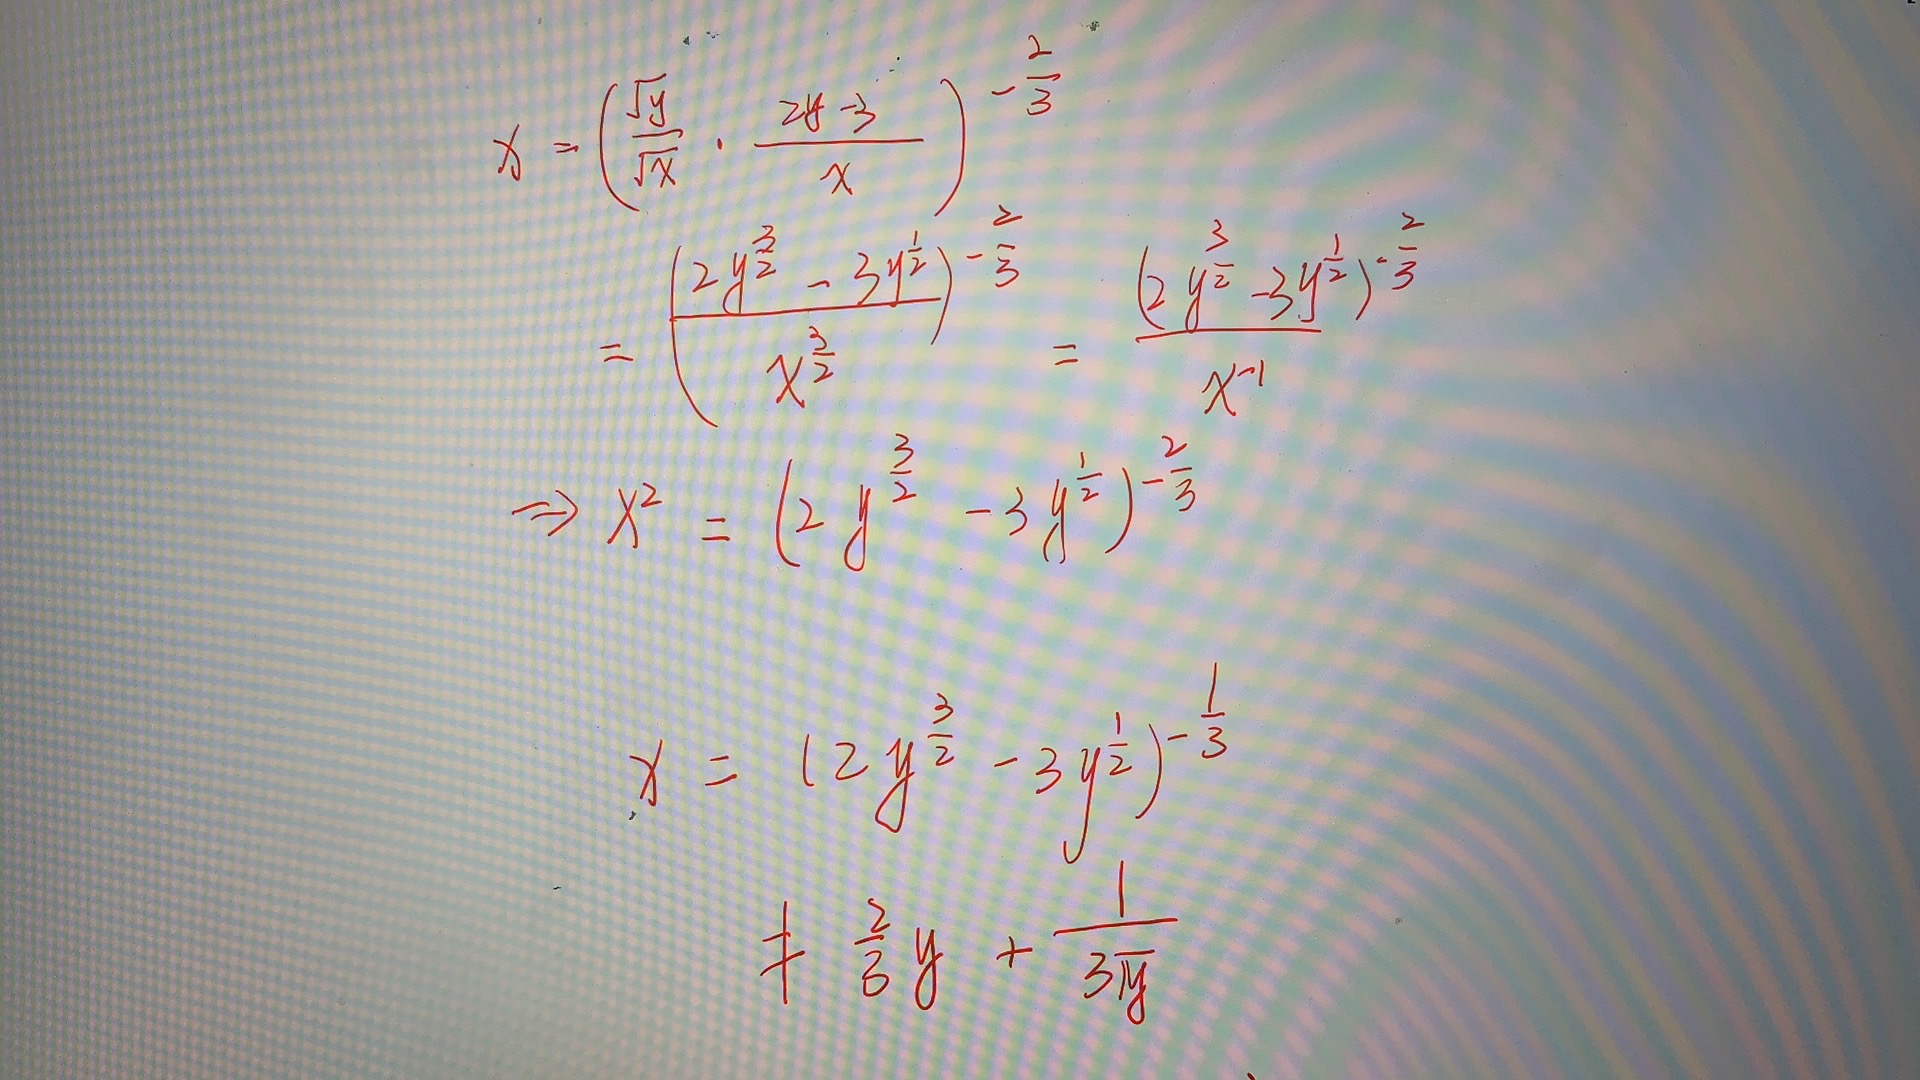 x = (√y/√x · (2y-3)/x)^(-2/3)
= ((2y^(3/2) - 3y^(1/2))/x^(3/2))^(-2/3) = (2y^(3/2) - 3y^(1/2))^(-2/3)/x^(-1)
⇒ x² = (2y^(3/2) - 3y^(1/2))^(-2/3)
x = (2y^(3/2) - 3y^(1/2))^(-1/3)
≠ 2/3 y + 1/(3√y)